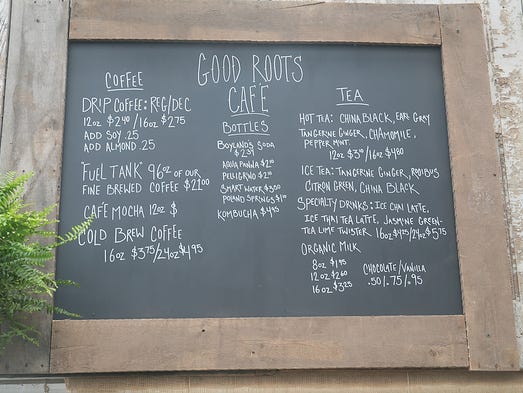 GOOD ROOTS
CAFE
COFFEE
DRIP COFFEE: REG/DEC
12oz $2.40/16oz $2.75
ADD SOY .25
ADD ALMOND .25
"FUEL TANK" 96oz OF OUR
FINE BREWED COFFEE $21.00
CAFE MOCHA 12oz $
COLD BREW COFFEE
16oz $3.75/24oz $4.95
BOTTLES
BOYLANDS SODA
AQUA PANNA
PELLIGRINO
SMART WATER
POLAND SPRINGS
KOMBUCHA $4.95
TEA
HOT TEA: CHINA BLACK, EARL GREY
TANGERINE GINGER, CHAMOMILE,
PEPPERMINT
12oz /16oz
ICE TEA: TANGERINE GINGER, ROOIBUS
CITRON GREEN, CHINA BLACK
SPECIALTY DRINKS: ICE CHAI LATTE,
ICE THAI TEA LATTE, JASMINE GREEN-
TEA LIME TWISTER 16oz $4.75/24oz $5.75
ORGANIC MILK
8oz $1.95
12oz $2.60
16oz $3.25
CHOCOLATE/VANILLA
.50/.75/.95